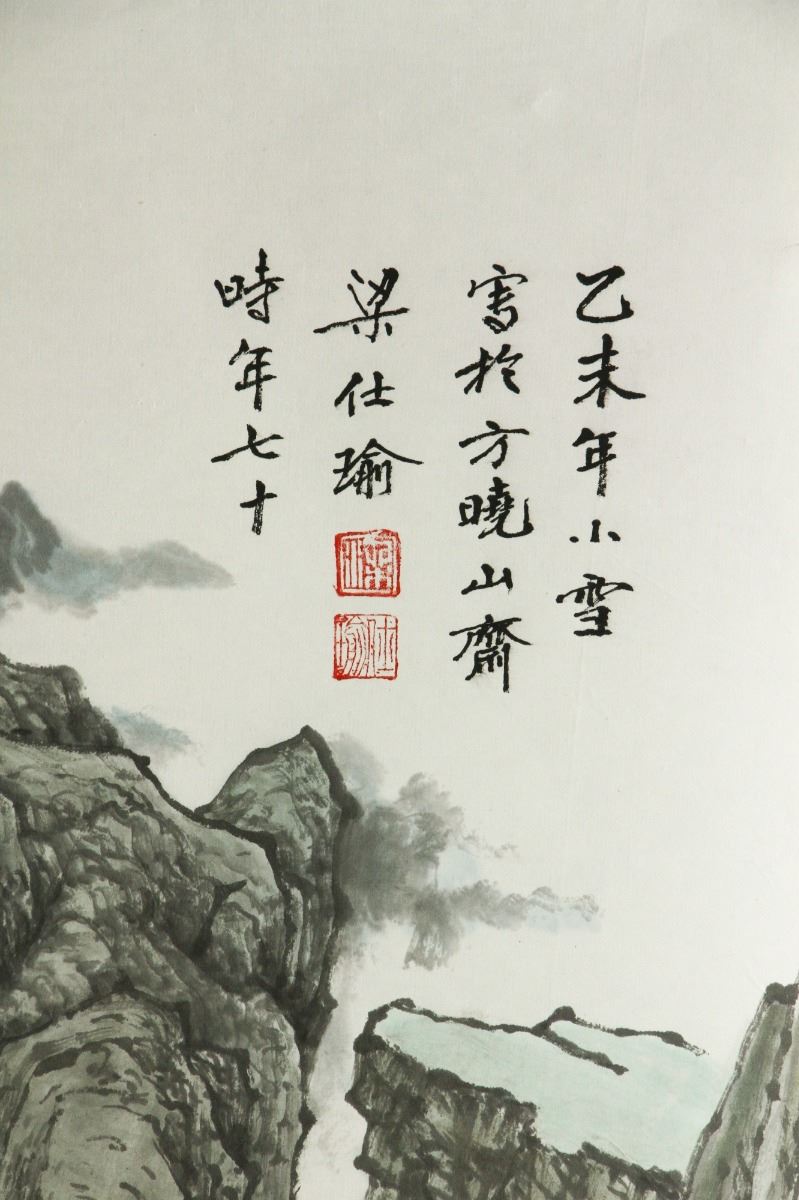 乙未年小雪
寫於方曉山齋
梁仕瑜
時年七十
梁
仕瑜